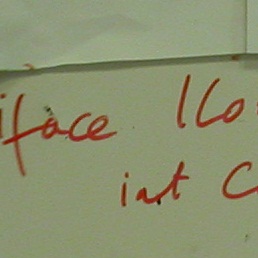 iface ICo
int C